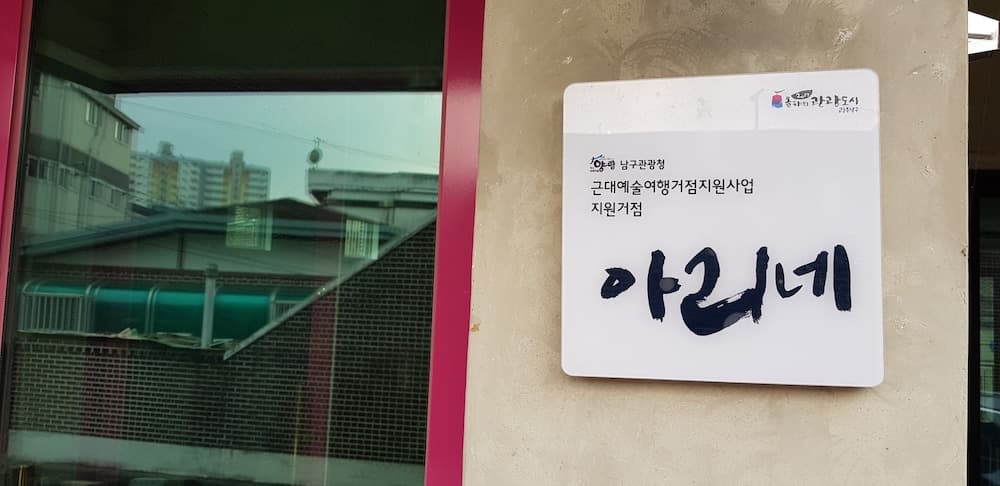 관광도시
남구관광청
근대예술여행거점지원사업
지원거점
아리네